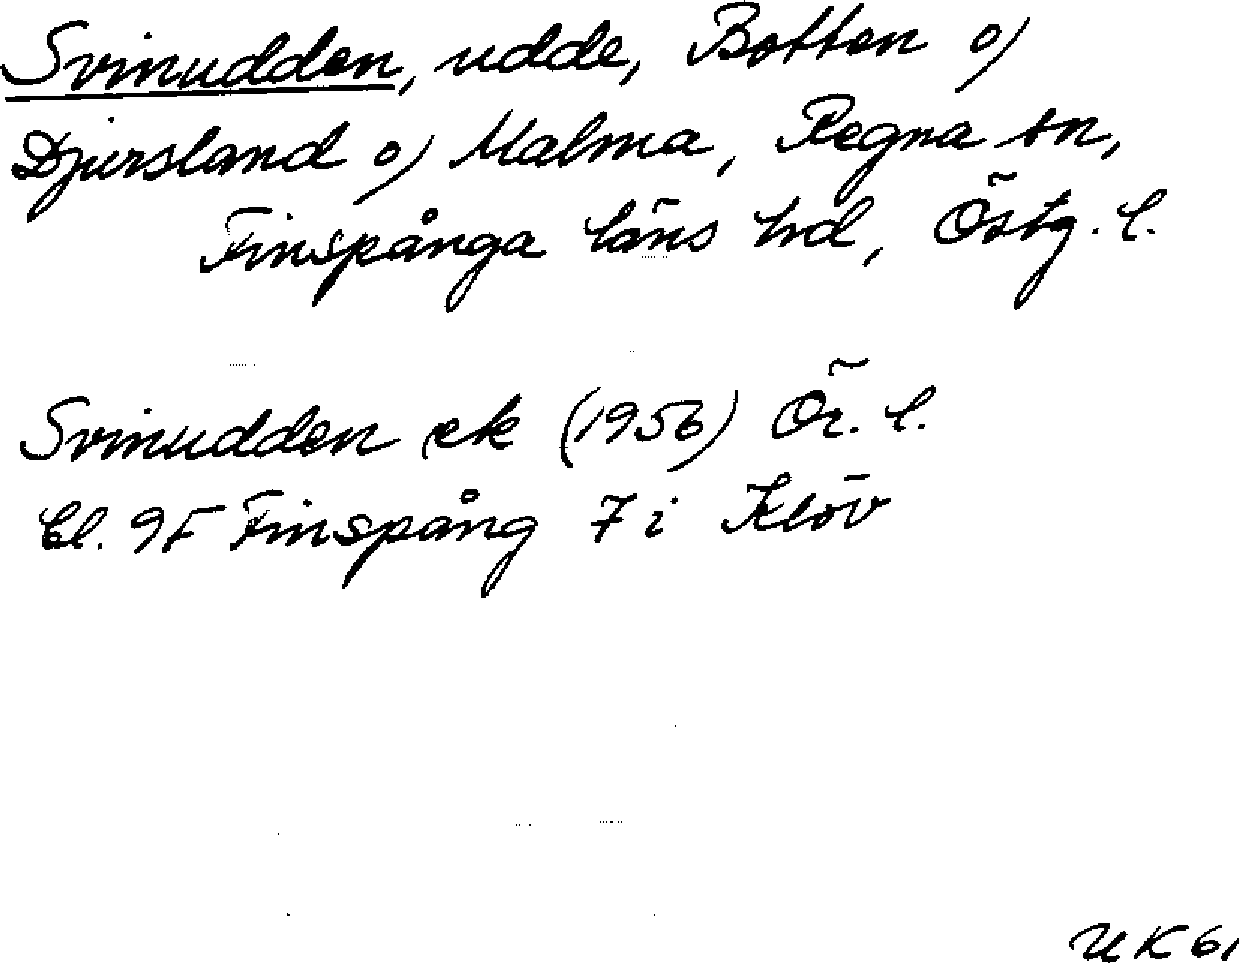 Svinudden, udde, Botten o)
Djursland o) Malma, Regna sn,
Finspånga läns hd, Östg. l.
Svinudden ek (1956) Ör. l.
bl. 9F Finspång 7 i Klöv
UK 61